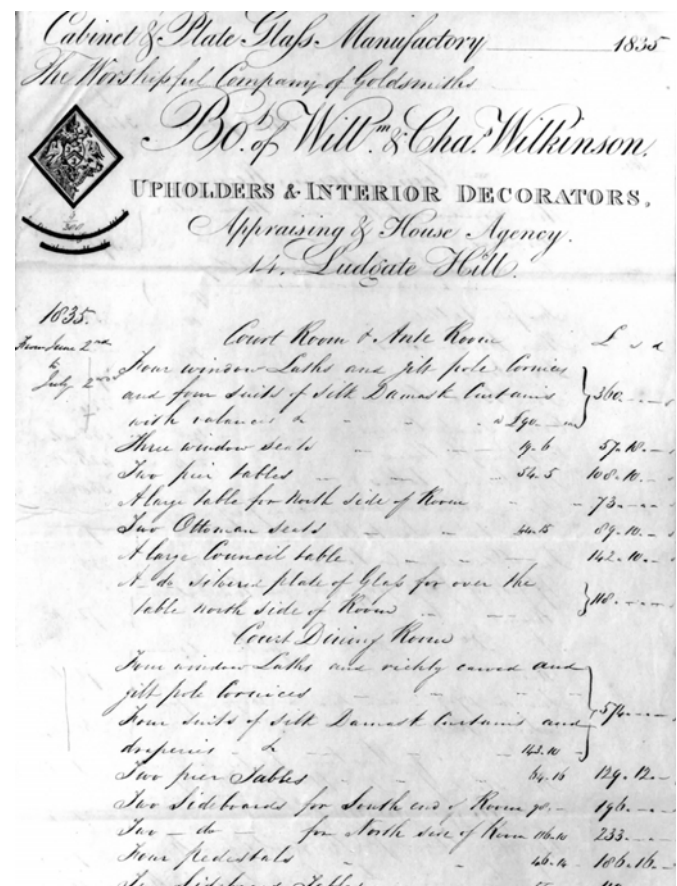 Cabinet & Plate Glass Manufactory 1835
The Worshipful Company of Goldsmiths
Bo.t of Will.m & Cha.s Wilkinson.
UPHOLDERS & INTERIOR DECORATORS,
Appraising & House Agency.
14, Ludgate Hill.
1835.
From June 2nd
to
July 2nd
Court Room & Ante Room £ s d
Four window Laths and gilt pole Cornices
and four suits of silk Damask Curtains 360
with valances & a £90
Three window seats 19.6 57.18
Two pier tables 54.5 108.10
A large table for North side of Room 73
Two Ottoman seats 44.15 89.10
A large Council table 142.10
A do silvered plate of Glass for over the
table north side of Room 118
Court Dining Room
Four window Laths and richly carved and
gilt pole Cornices
Four suits of silk Damask Curtains and 574
draperies & 143.10
Two pier Tables 64.16 129.12
Two Sideboards for South end of Room 98 196
Two do for North side of Room 116.10 233
Four pedestals 46.14 186.16